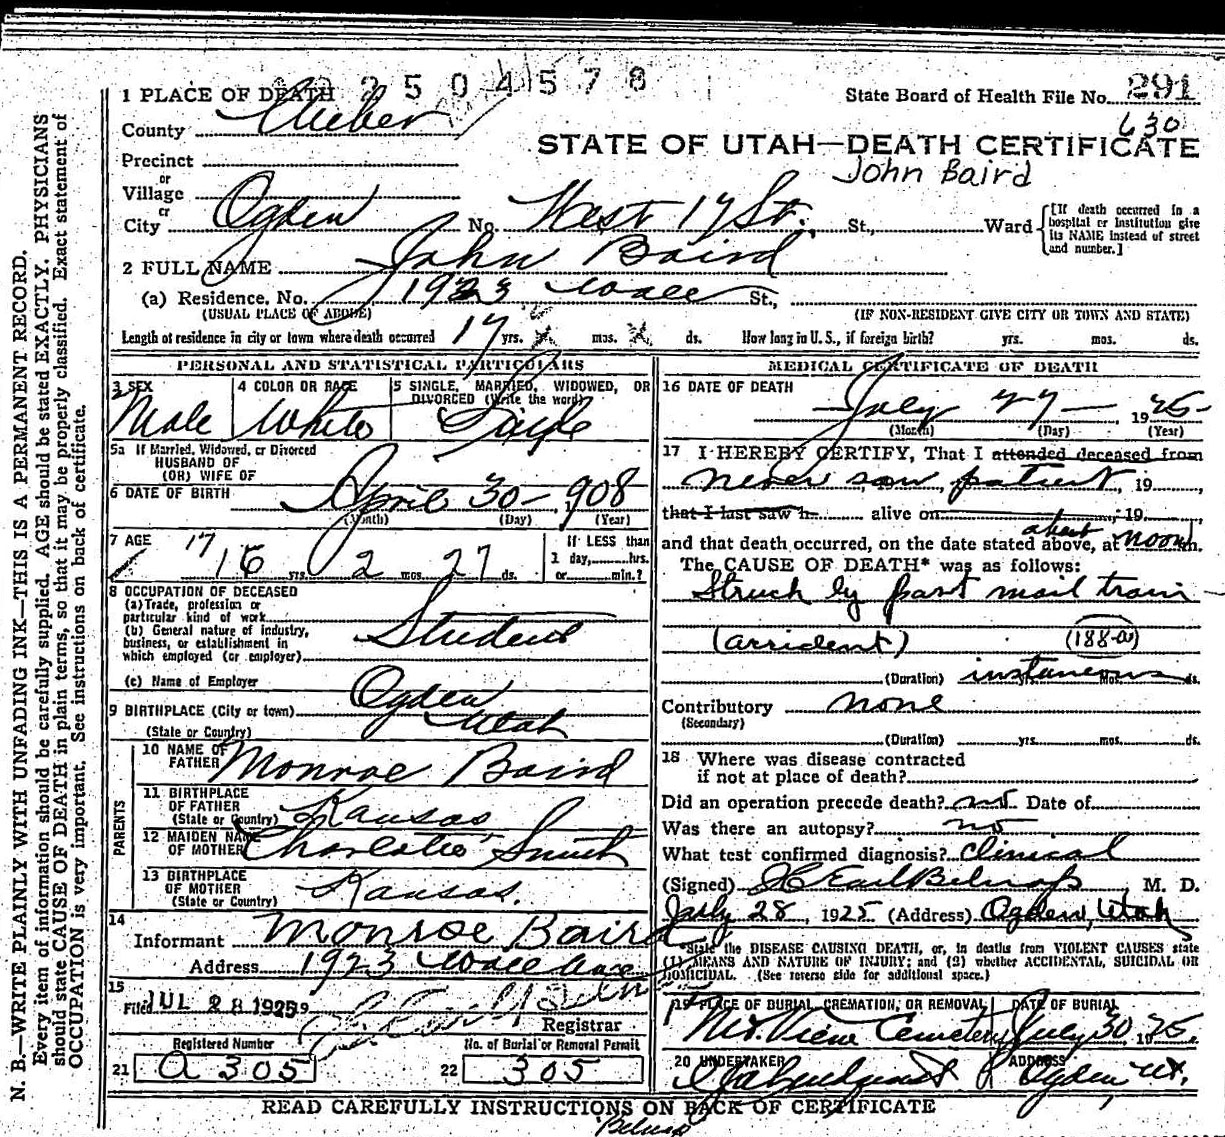 2504578
1 PLACE OF DEATH
State Board of Health File No. 291
630
County Weber
STATE OF UTAH—DEATH CERTIFICATE
Precinct
John Baird
or
Village
or
City Ogden No. West 17 St. St., Ward
[If death occurred in a hospital or institution give its NAME instead of street and number.]
2 FULL NAME John Baird
(a) Residence, No. 1923 Wall St.,
(USUAL PLACE OF ABODE) (IF NON-RESIDENT GIVE CITY OR TOWN AND STATE)
Length of residence in city or town where death occurred 17 yrs. x mos. x ds. How long in U. S., if foreign birth? yrs. mos. ds.
PERSONAL AND STATISTICAL PARTICULARS
3 SEX Male
4 COLOR OR RACE White
5 SINGLE, MARRIED, WIDOWED, OR DIVORCED (Write the word) Single
5a If Married, Widowed, or Divorced
HUSBAND OF
(OR) WIFE OF
6 DATE OF BIRTH April 30 - 908
(Month) (Day) (Year)
7 AGE 17
16 yrs. 2 mos. 27 ds.
If LESS than
1 day, hrs.
or min.?
8 OCCUPATION OF DECEASED
(a) Trade, profession or
particular kind of work
(b) General nature of industry,
business, or establishment in
which employed (or employer)
Student
(c) Name of Employer
9 BIRTHPLACE (City or town) Ogden
(State or Country) Utah
PARENTS
10 NAME OF FATHER Monroe Baird
11 BIRTHPLACE OF FATHER (State or Country) Kansas
12 MAIDEN NAME OF MOTHER Charlotte Smith
13 BIRTHPLACE OF MOTHER (State or Country) Kansas.
14
Informant Monroe Baird
Address 1923 Wall Ave
15
Filed JUL 28 1925
Registrar
Registered Number
21 a 305
No. of Burial or Removal Permit
22 305
MEDICAL CERTIFICATE OF DEATH
16 DATE OF DEATH
July 27 - 1925
(Month) (Day) (Year)
17 I HEREBY CERTIFY, That I attended deceased from
never saw patient, 19
that I last saw h alive on , 19
and that death occurred, on the date stated above, at about noon m.
The CAUSE OF DEATH* was as follows:
Struck by fast mail train
(accident) (188-a)
(Duration) instaneous yrs. mos. ds.
Contributory none
(Secondary)
(Duration) yrs. mos. ds.
18 Where was disease contracted
if not at place of death?
Did an operation precede death? no Date of
Was there an autopsy? no
What test confirmed diagnosis? Clinical
(Signed) M. D.
July 28, 1925 (Address) Ogden, Utah
*State the DISEASE CAUSING DEATH, or, in deaths from VIOLENT CAUSES state
(1) MEANS AND NATURE OF INJURY; and (2) whether ACCIDENTAL, SUICIDAL OR
HOMICIDAL. (See reverse side for additional space.)
19 PLACE OF BURIAL, CREMATION, OR REMOVAL DATE OF BURIAL
Cemetery July 30 1925.
20 UNDERTAKER ADDRESS
Ogden, Ut.
READ CAREFULLY INSTRUCTIONS ON BACK OF CERTIFICATE
N. B.—WRITE PLAINLY WITH UNFADING INK—THIS IS A PERMANENT RECORD.
Every item of information should be carefully supplied. AGE should be stated EXACTLY. PHYSICIANS
should state CAUSE OF DEATH in plain terms, so that it may be properly classified. Exact statement of
OCCUPATION is very important. See instructions on back of certificate.